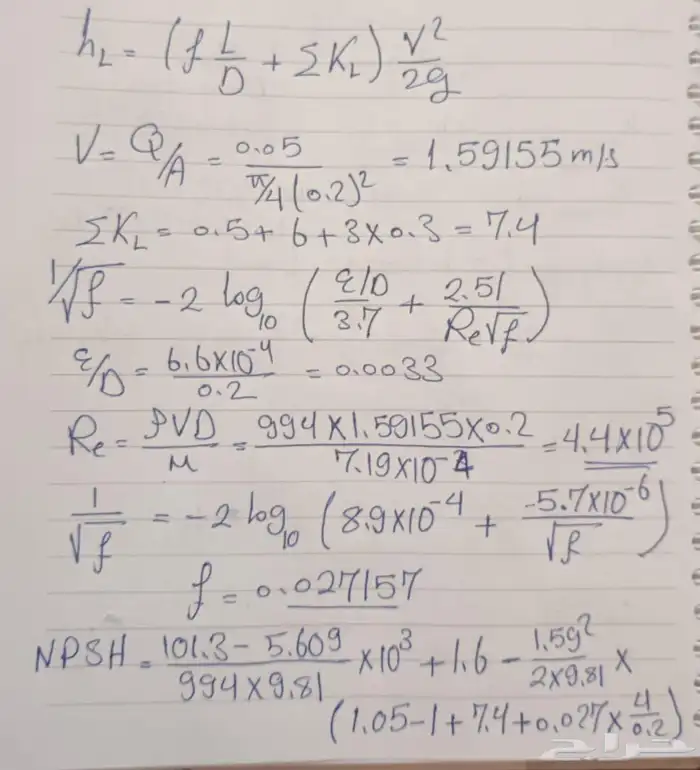 h_L = (f L/D + ΣK_L) V²/2g
V = Q/A = 0.05 / (π/4 (0.2)²) = 1.59155 m/s
ΣK_L = 0.5 + 6 + 3×0.3 = 7.4
1/√f = -2 log₁₀ ( (ε/D)/3.7 + 2.51/(Re√f) )
ε/D = 6.6×10⁻⁴ / 0.2 = 0.0033
Re = ρVD/μ = 994×1.59155×0.2 / 7.19×10⁻⁴ = 4.4×10⁵
1/√f = -2 log₁₀ ( 8.9×10⁻⁴ + -5.7×10⁻⁶/√f )
f = 0.027157
NPSH = (101.3 - 5.609)/(994×9.81) ×10³ + 1.6 - 1.59²/(2×9.81) ×
(1.05 - 1 + 7.4 + 0.027 × 4/0.2)
حراج